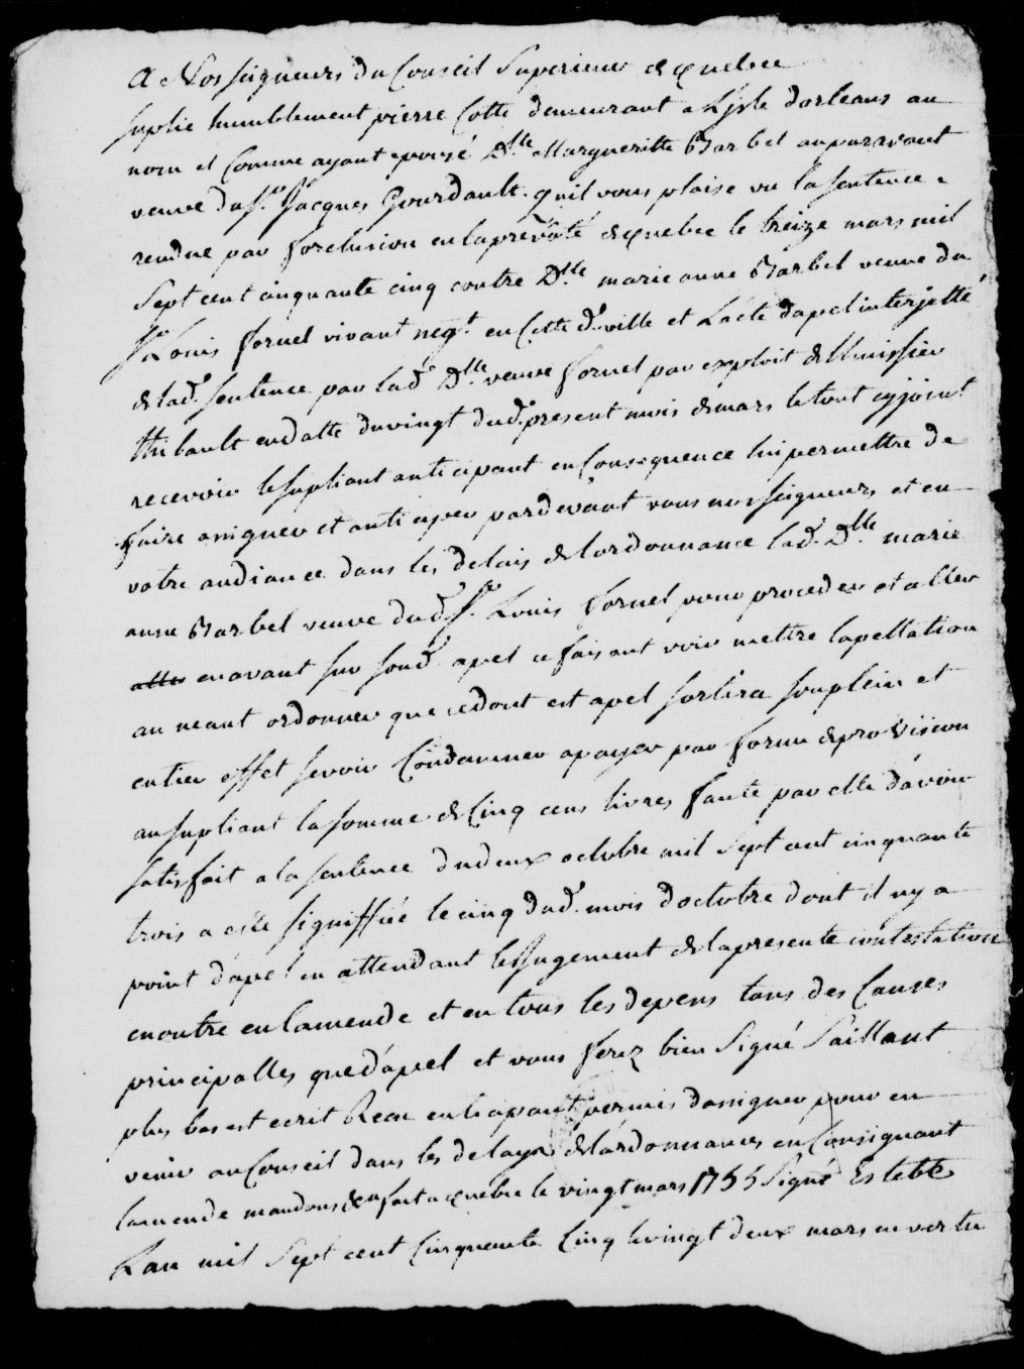 A Nosseigneurs du Conseil Superieur de quebec
suplie humblement pierre Cotté demeurant a Lisle dorleans au
nom et Comme ayant epousé Dlle Margueritte Barbel auparavant
veuve du Sr Jacques Gourdault. quil vous plaise vu la sentence
rendue par forclusion en la prévôté de quebec le treize mars mil
Sept cent cinquante cinq contre Dlle marie anne Barbel veuve du
Sr Louis fornel vivant negt en Cette d. ville et Lacte dapel interjetté
de lad. sentence par lad. Dlle veuve fornel par exploit de Lhuissier
thibault en datte du vingt dud. present mois de mars le tout cyjoint
recevoir le supliant anticipant en Consequence lui permettre de
faire assigner et anticiper pardevant vous nosseigneurs et en
votre audiance dans les delais de lordonnance lad. Dlle marie
anne Barbel veuve dud. Sr. Louis fornel pour proceder et aller
aller en avant sur sond. apel ce faisant voir mettre lapellation
au neant ordonner que ce dont est apel sortira son plein et
entier effet savoir Condamner a payer par forme de provision
au supliant la somme de Cinq cens livres faute par elle d'avoir
satisfait a la sentence du deux octobre mil Sept cent cinquante
trois a elle signiffiée le cinq dud. mois doctobre dont il ny a
point dapel en attendant le Jugement de la presente contestation
en outre en lamende et en tous les depens tans des Causes
principalles que d'apel et vous ferez bien Signé Saillant
plus bas est ecrit Recu enticipant permis dassigner pour en
venir au Conseil dans les delays de lordonnances en Consignant
lamende mandons &a fait a quebec le vingt mars 1755 Signé Estebe
Lan mil Sept cent Cinquente Cinq le vingt deux mars en vertu